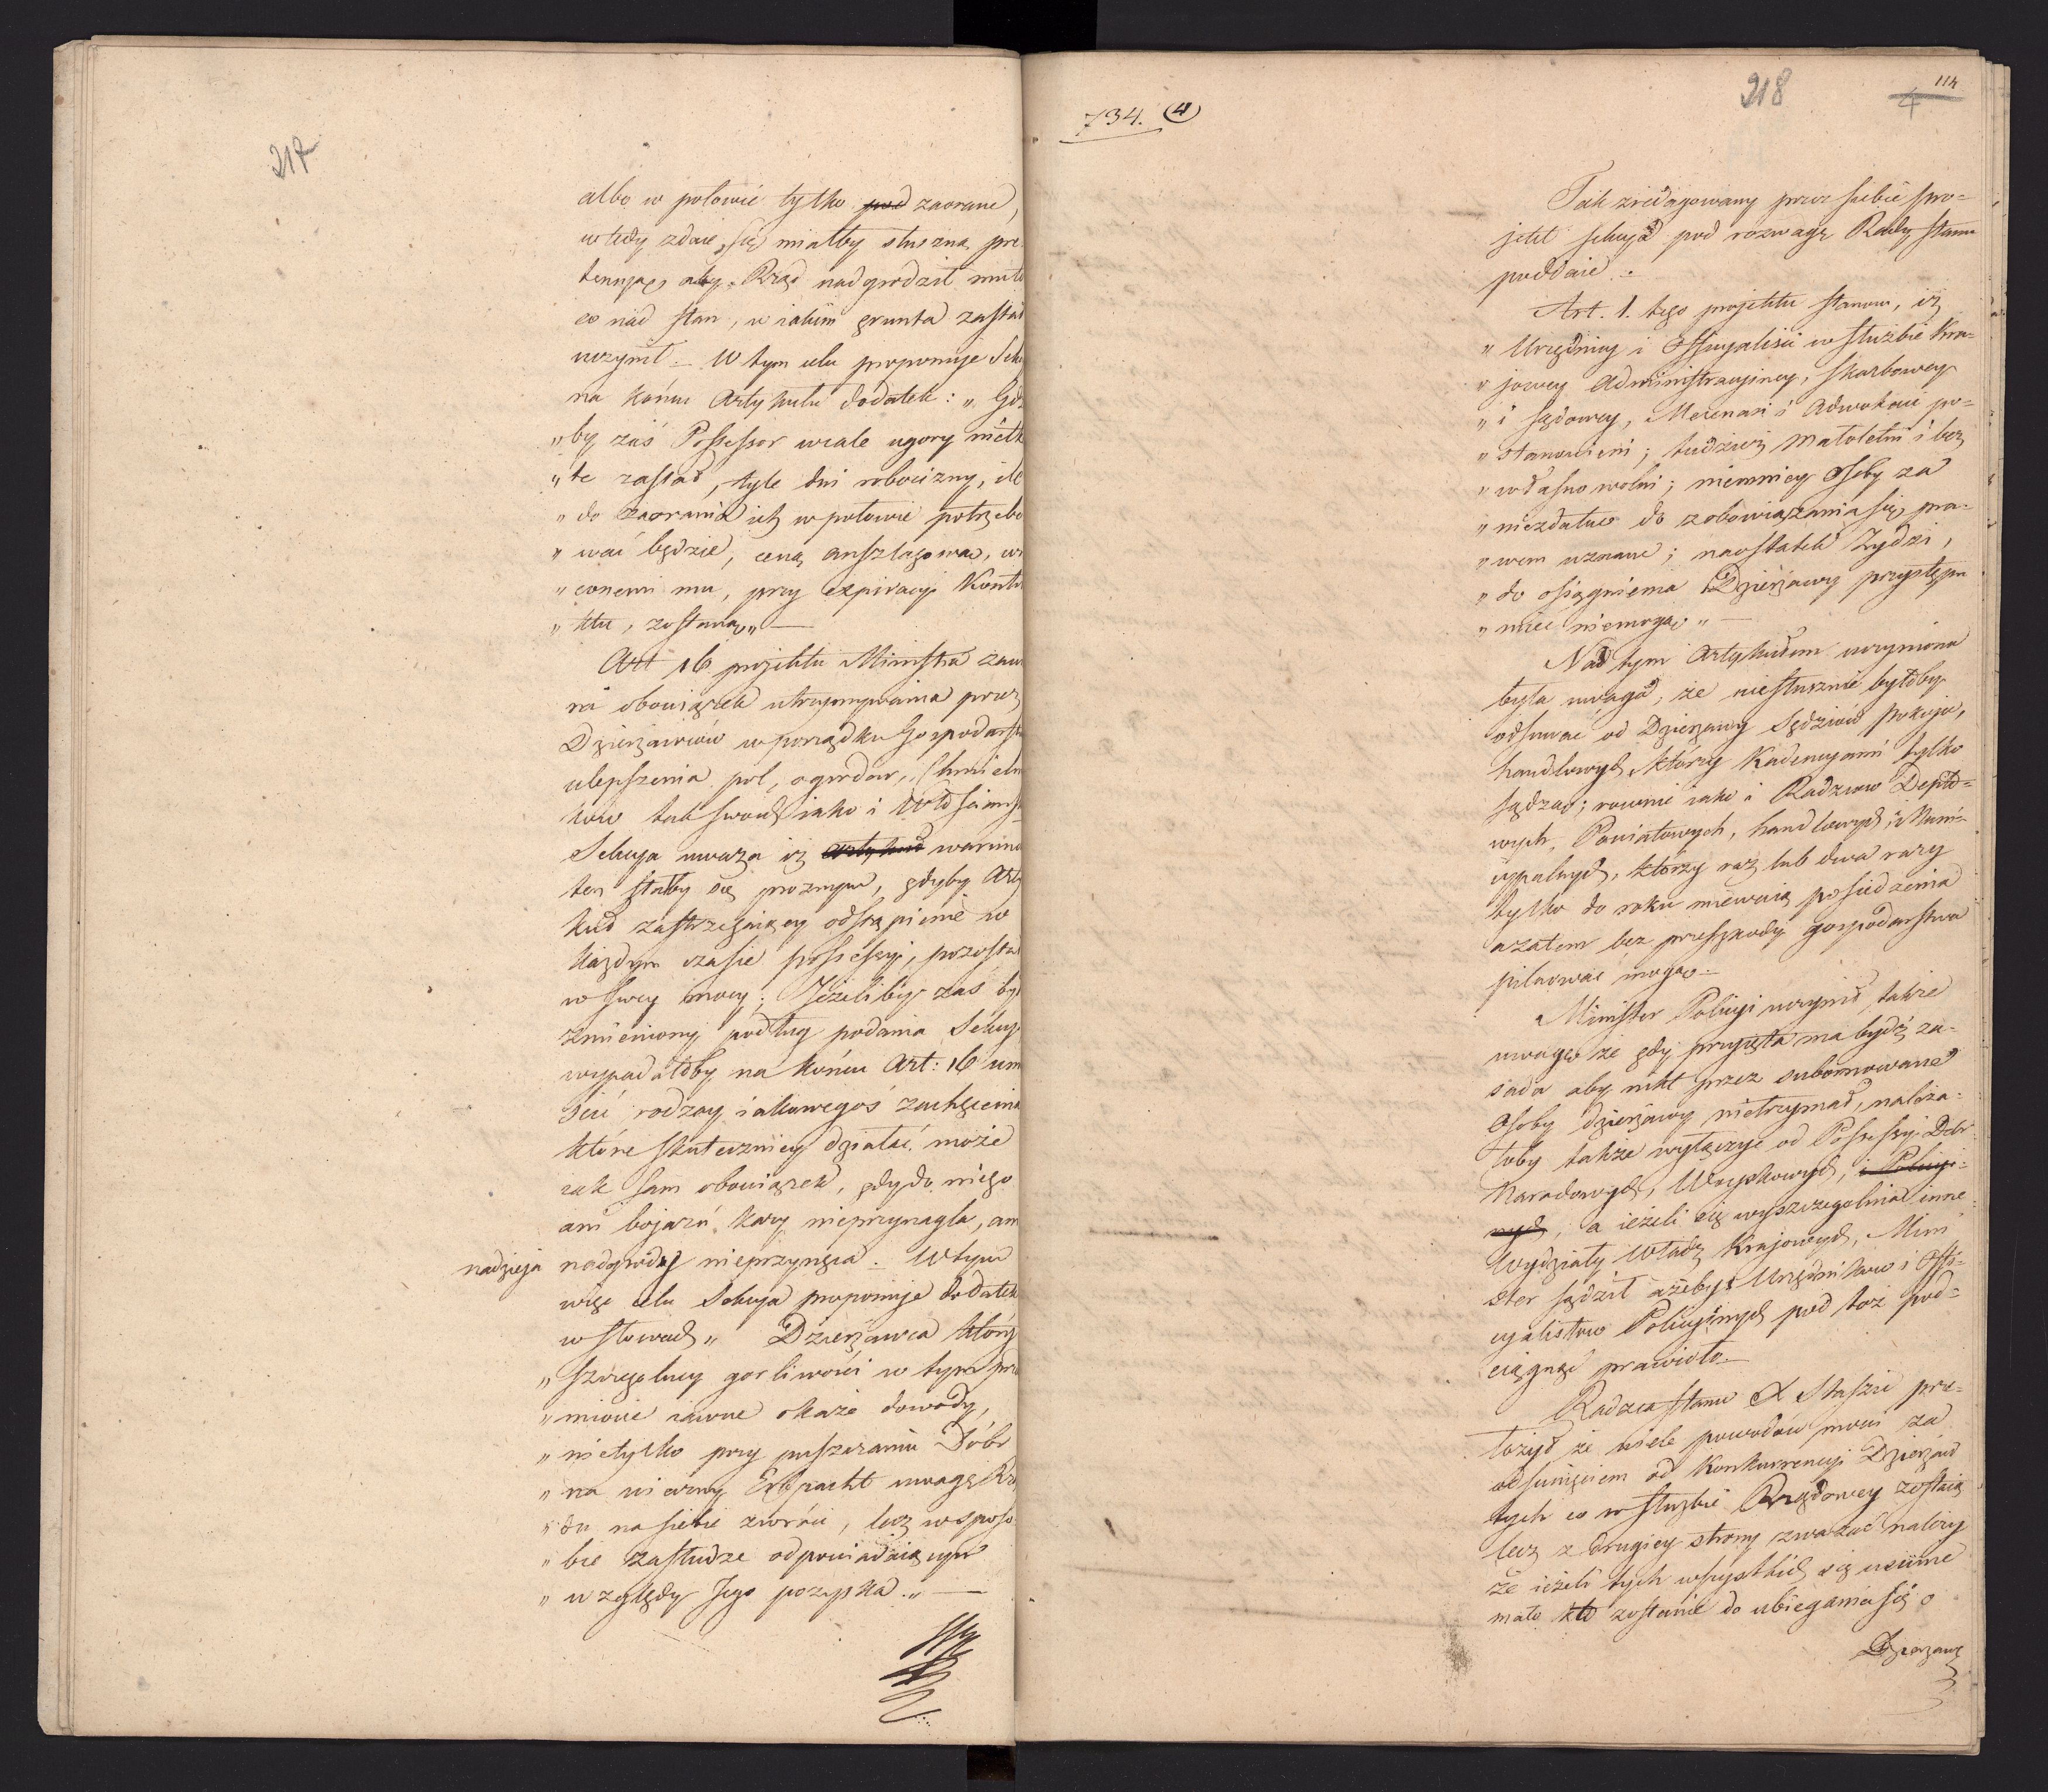 217
albo w połowie tylko pod zaorane,
wtedy zdaie się miałby słuszną pre
tensyę aby Rząd nadgrodził mu to
co nad stan, w iakim grunta zastał
uczynił _ W tym celu proponuje Sek
na końcu Artykułu dodatek: „ Gd
„ by zaś Possessor wcale ugory nietk
„ te zastał, tyle dni robocizny, ile
„ do zaorania ich w połowie potrzebo
„ wać będzie, ceną anszlagową, w
„ conemi mu, przy expiracyi Kontr
„ ktu, zostaną „ —
Art 16 projektu Ministra zaw
ra obowiązek utrzymywania przez
Dzierżawców w porządku Gospodarst
ulepszenia pol, ogrodow, Chmieln
kow tak swoich iako i Włościansk
Sekcya uważa iż artykuł warune
ten stałby się proznym, gdyby Arty
kuł zastrzegaiący odstąpienie w
każdym czasie possessyi, pozostał
w swey mocy; Jeżeliby zaś był
zmieniony podług podania Sekcyi
wypadałoby na końcu Art: 16 um
ścić rodzay iakowegoś zachęcenia
które skuteczniey działać może
iak sam obowiązek, gdy do niego
ani bojazń kary nieprzynagla, ani
nadzieja nadgrody nieprzynęca. W tym
więc celu Sekcya proponuje dodatek
w słowach „ Dzierżawca który
„ szczegolney gorliwości w tym prz
„ miocie iawne okaże dowody,
„ nietylko przy puszczaniu Dóbr
„ na wieczny Erbpacht uwagę Rzą
„ du na siebie zwróci, lecz w sposo
„ bie zasłudze odpowiadaiącym
„ względy Jego pozyska „ —
734. 4
218
114
4
Tak zredagowany przez siebie pro-
jekt sekcya pod rozwagę Rady Stanu
poddaie .
Art. 1. tego projektu stanowi, iż
„ Urzędnicy i Officyaliści w służbie Kra-
„ jowey Administracyiney, Skarbowey
„ i Sądowey, Mecenasi i Adwokaci po-
„ stanowieni; tudzież małoletni i bez
„ własnowolni; niemniey osoby za
„ niezdatne do zobowiązania się pra-
„ wem uznane; naostatek Żydzi,
„ do osiągnienia Dzierżawy przystępu
„ mieć niemogą „ —
Nad tym Artykułem uczyniona
była uwaga, że niesłusznie byłoby
odsuwać od Dzierżawy Sędziów Pokoju,
handlowych, którzy Kadencyami tylko
sądzą; rownie iako i Radzcow Depto-
wych, Powiatowych, handlowych i Muni-
cypalnych, którzy raz lub dwa razy
tylko do roku miewaią posiedzenia
azatem bez przeszkody gospodarstwa
pilnować mogą —
Minister Policyi uczynił, także
uwagę że gdy przyięta ma bydź za-
sada aby nikt przez subornowane
Osoby dzierżawy nietrzymał, należa-
łoby także wyłączyć od Possessyi Dobr
Narodowych, Woyskowych, i Policyi-
nych, a ieżeli się wyszczegolnia inne
Wydziały Władz Krajowych, Mini
ster sądził ażeby i Urzędnikow i Offi-
cyalistow Policyjnych pod toż pod-
ciągnąć prawidło —
Radzca Stanu X Staszic prze-
łożył że wiele powodów mowi za
odsunięciem od Konkurrencyi Dzierżaw
tych co w służbie Rządowey zostaią
lecz z drugiey strony zważać należy
że ieżeli tych wszystkich się usunie
mało kto zostanie do ubiegania się o
Dzierżawę